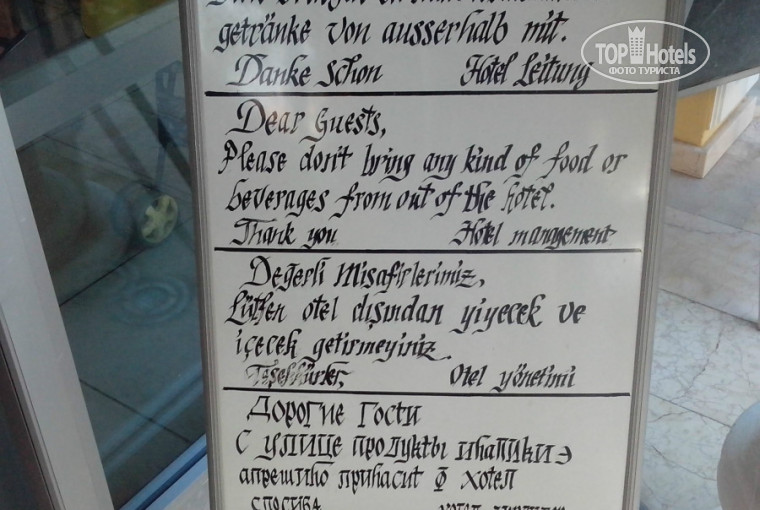 getränke von ausserhalb mit.
Danke Schon Hotel Leitung
Dear Guests,
Please don't bring any kind of food or
beverages from out of the hotel.
Thank you Hotel management
Değerli Misafirlerimiz,
Lütfen otel dışından yiyecek ve
içecek getirmeyiniz.
Teşekkürler, Otel yönetimi
Дорогие Гости
С УЛИЦЕ продукты
хотел
спосиба
TOPHotels
ФОТО ТУРИСТА